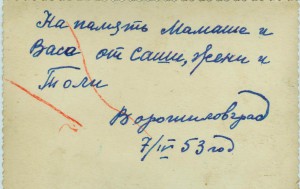 На память Мамаше и
Васа от Саши, Жени и
Толи
Ворошиловград
7/IV 53 год